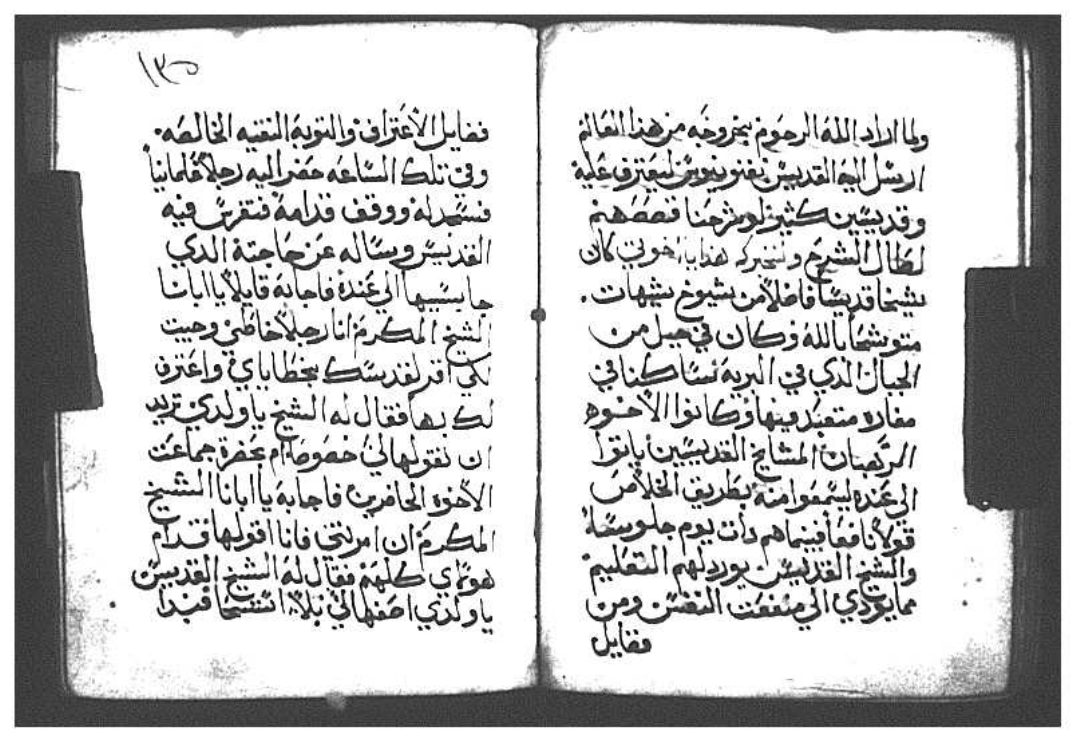 ولما اراد الله الرحوم بخروجه من هذا العالم
ارسل اليه القديس نفنوتيوس ليعترف عليه
وقديسين كثير لو شرحنا قصصهم
لطال الشرح ونخبركم هدا يا اخوتي كان
شيخا قديسا فاضلا من شيوخ شيهات .
متوشحا بالله وكان في جبل من
الجبال الذي في البريه نسا كنا في
مغاره متعبد فيها وكانوا الاخوه
الرهبان المشايخ القديسين ياتوا
الي عنده ليسمعوا منه بطريق الخلاص
قولا نافعا فبينما هم دات يوم جلوسا
والشيخ القديس يورد لهم التعليم
مما يودي الي منفعت النفس ومن
فضايل
١٣٥
فضايل الأعتراف والتوبة النقيه الخالصه .
وفي تلك الساعه حضر اليه رجلا علمانيا
فسجد له ووقف قدامه فتفرس فيه
القديس وساله عن حاجته الدي
جا بسببها الي عنده فاجابه قايلا يا ابانا
الشيخ المكرم انا رجلا خاطي وجيت
لكي اقر لقدسك بخطاياي واعترف
لك بها فقال له الشيخ يا ولدي تريد
ان تقولها لي خصوصا ام بحضرة جماعت
الاخوه الحاضرين فاجابه يا ابانا الشيخ
المكرم ان امرتني فانا اقولها قدام
هولاي كلهم فقال له الشيخ القديس
يا ولدي اصفها لي بلا استحا فبدا